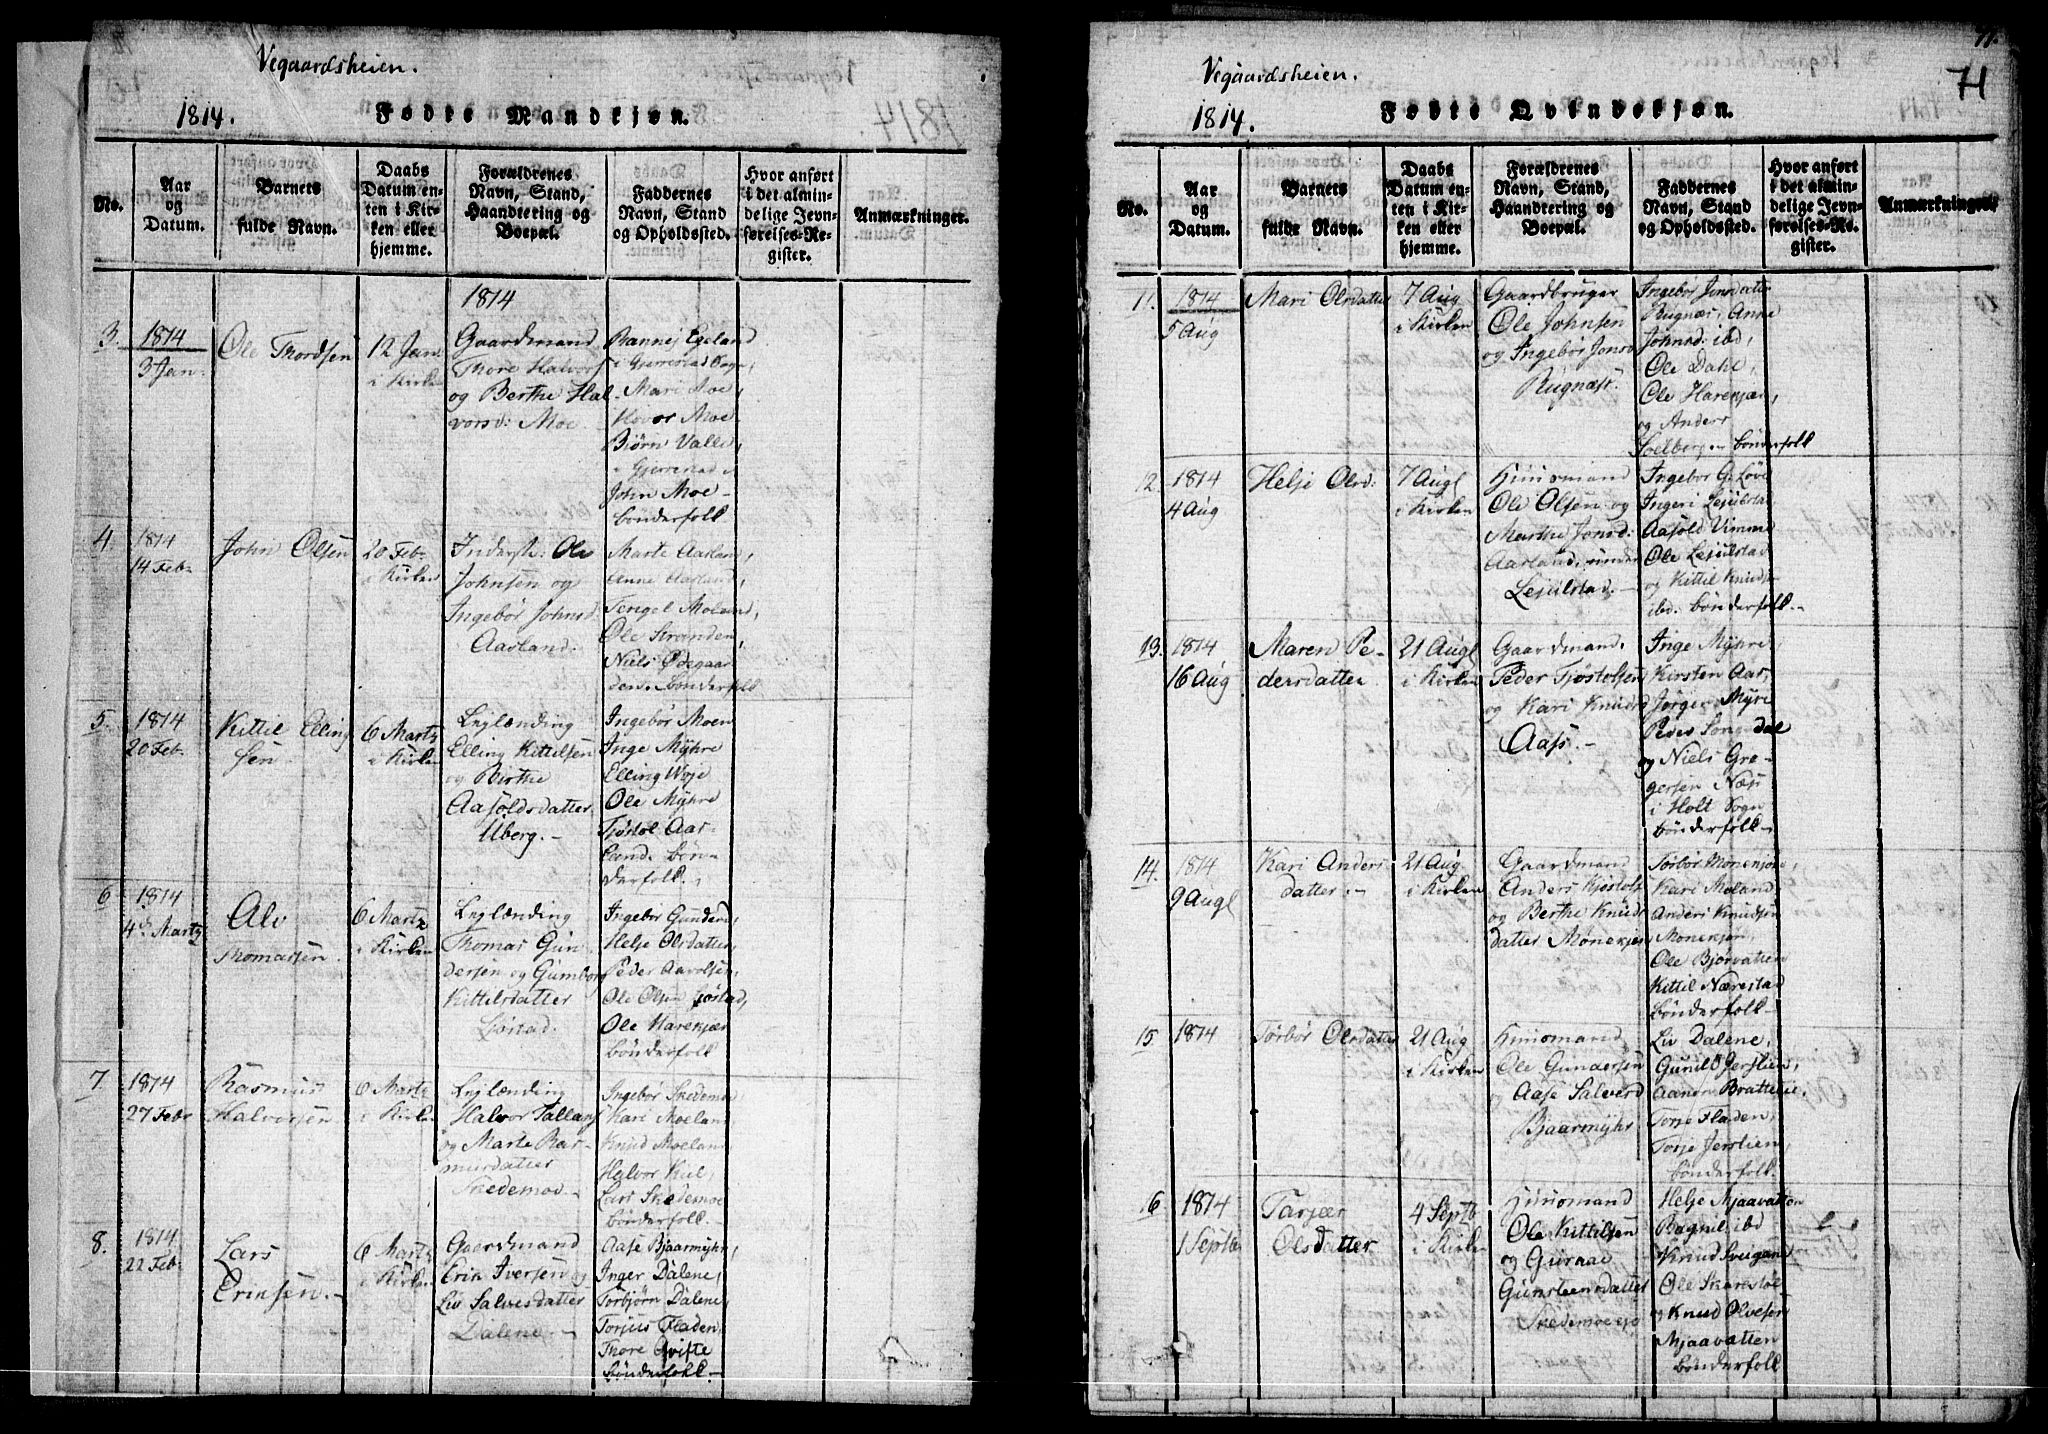 Vegaardsheien.
1814.
Fødte Mandkjøn.
No.
Aar
og
Datum.
Barnets
fulde Navn.
Daabs
Datum en-
ten i Kir-
ken eller
hjemme.
Forældrenes
Navn, Stand,
Haandtering og
Boepæl.
Faddernes
Navn, Stand
og Opholdssted.
Hvor anført
i det almin-
delige Jevn-
førelses-Re-
gister.
Anmærkninger.
3.
1814
3 Jan.
Ole Thordsen
12 Jan.
i Kirken
1814
Gaardmand
Thore Halvors
og Berthe Hal-
vorsd: Moe
Egeland
i Gjerrestad Sogn
Mari Moe,
Hovor Moe
Biørn Valle,
i Gjerrestad
John Moe
bønderfolk
4.
1814
14 Feb.
John Olsen
20 Feb.
i Kirken
Inderste: Ole
Johnsen og
Ingebør Johnsd.
Aasland.
Marte Aasland,
Anne Aasland,
Tengel Moland,
Ole Stranden,
Niels Ødegaar
den. bønderfolk
5.
1814
20 Feb.
Kittil Elling
sen.
6 Martz
i Kirken
Lejlænding
Elling Kittilsen
og Birthe
Aasoldsdatter
Uberg.-
Ingebør Moen
Inge Myhre
Elling Woje
Ole Myhre
Tjøstol Aas-
land. bøn-
derfolk.
6
1814
4de Martz
Alv
Thomassen
6 Martz
i Kirken
Lejlænding
Thomas Gun
dersen og Gumbor
Kittilsdatter
Ljøstad.
Ingebør Gunders,
Helje Olsdatter,
Peder Aavolsen,
Ole Olsen Ljøstad,
Ole Harekjær
bønderfolk
7
1814
27 Feb.
Rasmus
Halvorsen
6 Martz
i Kirken
Lejlænding
Halvor Tallags
og Marte Ras-
musdatter
Skedemoe.-
Ingebør Skedemoe
Kari Moeland
Knud Moeland
Halvor Kiil,
Lars Skedemoe
bønderfolk.-
8.
1814
21 Feb.
Lars
Erinsen.-
6 Martz
i Kirken
Gaardmand
Erin Iversen og
Liv Salvesdatter
Dalene.-
Aase Bjaarmyhr,
Inger Dalene,
Torbjørn Dalene,
Torjus Fladen,
Thore Qvifte
bønderfolk.-
71.
71
Vegaardsheien.
1814.
Fødte Qvindekjøn.
No.
Aar
og
Datum.
Barnets
fulde Navn.
Daabs
Datum en-
ten i Kir-
ken eller
hjemme.
Forældrenes
Navn, Stand,
Haandtering og
Boepæl.
Faddernes
Navn, Stand
og Opholdssted.
Hvor anført
i det almin-
delige Jevn-
førelses-Re-
gister.
Anmærkninger.
11.
1814
5 Aug
Mari Olsdatter
7 Aug
i Kirken
Gaardbruger
Ole Johnsen
og Ingebør Jonsd
Rugnæss.
Ingebør Jensdatter
Rugnæs, Anne
Johnsd: ibd,
Ole Dahl,
Ole Harekjær,
og Anders
Solberg.- bønderfolk
12.
1814
4 Aug
Helje Olsd:
7 Aug
i Kirken
Huusmand
Ole Olsen og
Marthe Jonsd:
Aasland, under
Lejulstad.-
Ingebor G. Løve
Ingeri Lejulstad
Aasold Vimme
Ole Lejulstad
og Kittil Knuds
ibd. bønderfolk.-
13.
1814
16 Aug
Maren Pe-
dersdatter
21 Aug
i Kirken
Gaardmand.
Peder Tjøstolsen
og Kari Knudsd
Aass.-
Inge Myhre
Kirsten Aas,
Jørgen Myre
Peder Songedal
og Niels Gre-
gersen Næss
i Holt Sogn
bønderfolk-
14.
1814
9 Aug
Kari Anders
datter.-
21 Aug
i Kirken
Gaardmand
Anders Kjøstols
og Berthe Knuds
datter Mønekjøn
Torbør Monekjøn,
Kari Moland
Anders Knudsen
Monekjøn,
Ole Bjørvatten
Kittil Nærestad
bønderfolk-
15
1814
Torbør Olsdatter
21 Aug
i Kirken
Huusmand
Ole Gundersen
og Aase Salvesd
Bjaarmyhr
Liv Dalene,
Gunild Jerslien,
Aanon Bratteree,
Torje Fladen,
Torje Jerslien,
bønderfolk.
16
1814
1 Septb
Tarjær
Olsdatter
4 Septb
i Kirken
Huusmand
Ole Kittilsen
og Guraae
Gunsteensdatter
Helje Mjaavatten
Ragnil ibd
Knud Sveigand
Ole Skarestøl
og Knud Olvesøn
Mjaavatten
bønderfolk